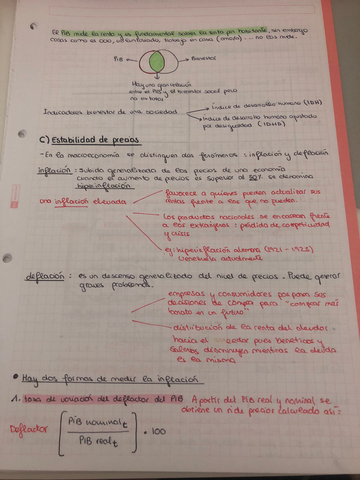 El PIB mide la renta y es fundamental saber la renta por habitante, sin embargo
cosas como el ocio, voluntariado, trabajo en casa (amas) ... no las mide.
PIB Bienestar
Hay una gran relación
entre el PIB y el bienestar social pero
no es total
Indicadores bienestar de una sociedad
Índice de desarrollo humano (IDH)
Índice de Desarrollo humano ajustado
por desigualdad (IDHD)
C) Estabilidad de precios
- En la macroeconomía se distinguen dos fenómenos: inflación y deflación
Inflación: Subida generalizada de los precios de una economía
cuando el aumento de precios es superior al 50% se denomina
hiperinflación
una inflación elevada
favorece a quienes pueden actualizar sus
rentas frente a los que no pueden.
Los productos nacionales se encarecen frente
a los extranjeros: pérdida de competitividad
y crisis
ej: hiperinflación alemana (1921-1923)
Venezuela actualmente
deflación: es un descenso generalizado del nivel de precios. Puede generar
graves problemas.
empresas y consumidores posponen sus
decisiones de compra para "comprar más
barato en un futuro"
distribución de la renta del deudor
hacia el pues beneficios y
salarios disminuyen mientras la deuda
es la misma
• Hay dos formas de medir la inflación
1. tasa de variación del deflactor del PIB. A partir del PIB real y nominal se
obtiene un n de precios calculado así:
Deflactor [PIB nominal t / PIB real t] · 100